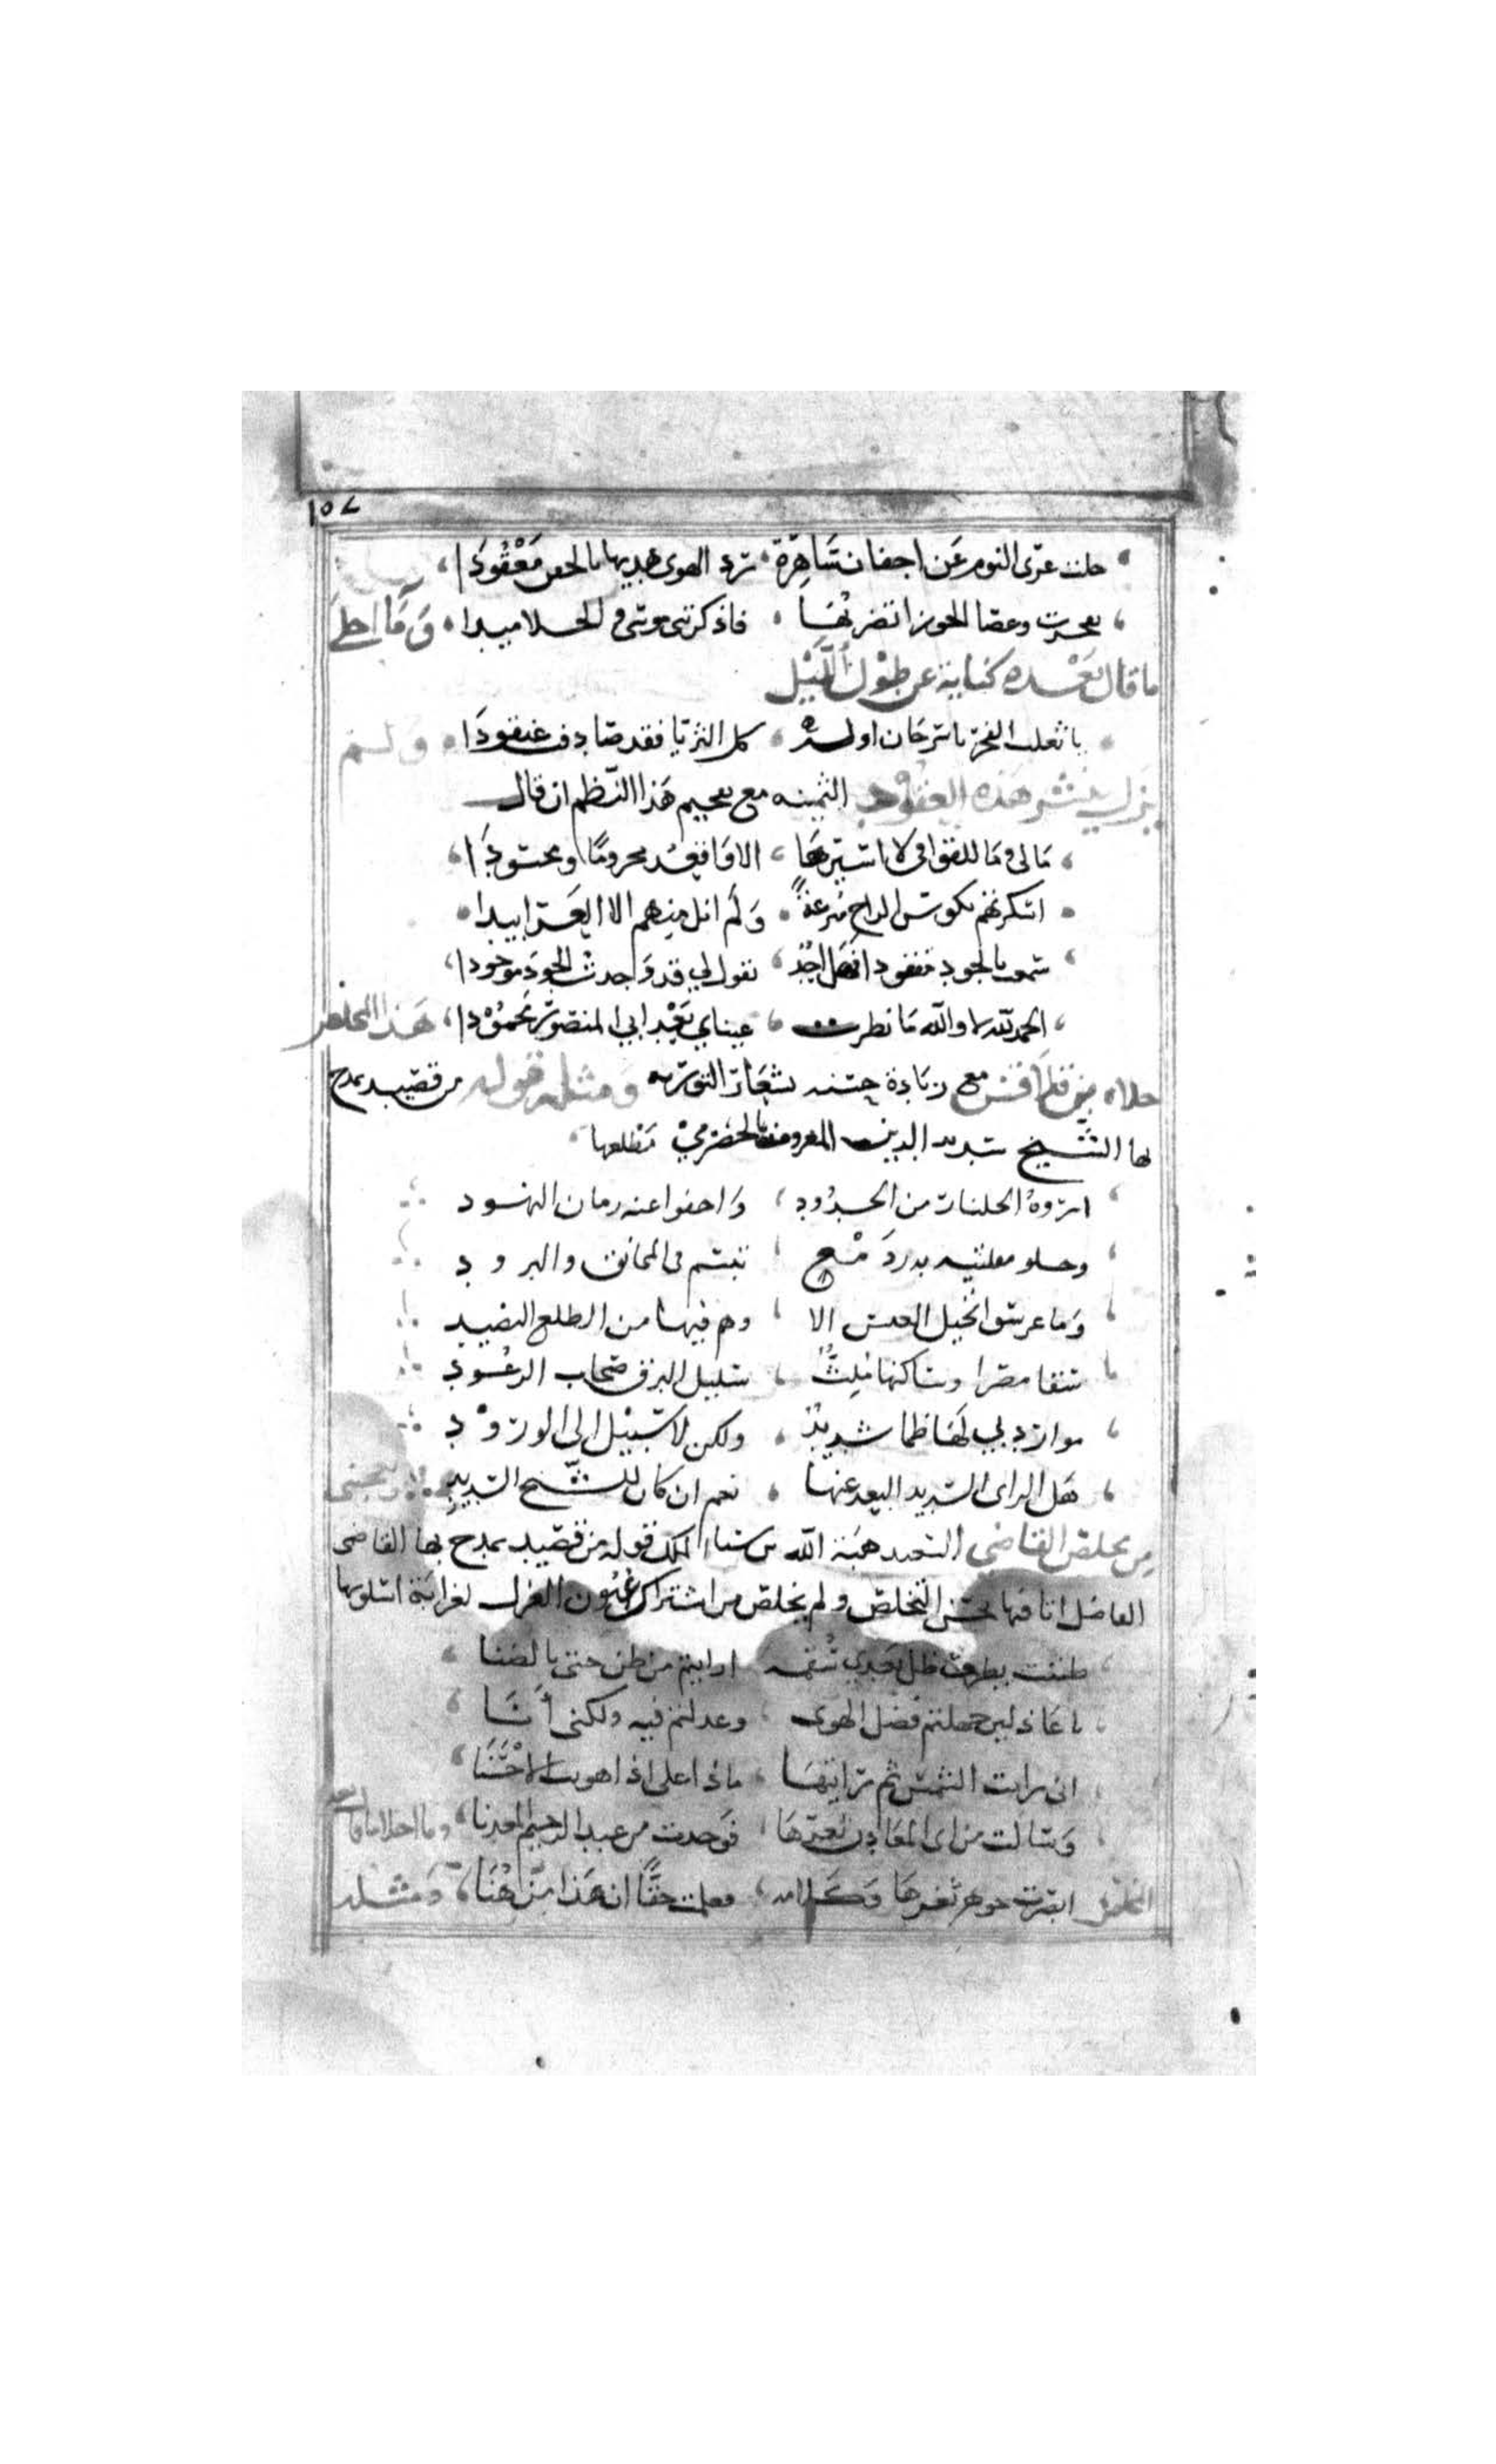 ١٥٧
حلت عرى النوم عن اجفان ساهرة ، ترد الهوى هدبها بالجفن معقودا ،
تفجرت وعصا الجوزا تضربها ، فاذكرتني موسى والجلاميدا ، وما احلى
ما قال بعده كناية عن طول الليل
يا ثعلب الفجر يا سرحان اوله ، كل الثريا فقد صادف عنقودا ، ولم
يزل ينثر هذه العقود الثمينه مع سجيم هذا النظم ان قال
ما لي وما للقوافي لا اسيرها ، الا واقعد محروما ومحسودا ،
اسكرتهم بكوس الراح مترعة ، ولم انل منهم الا العرابيدا ،
سمعت بالجود مفقودا فهل احد ، يقول لي قد وجدت الجود موجودا ،
الحمد لله لا والله ما نظرت ، عيناي بعد ابي المنصور محمودا ، هذا المخلص
حلاه من قلاقس مع زيادة حسنه بشعار التوريه ومثله قوله من قصيد يمدح
بها الشيخ سديد الدين المعروف بالحضرمي مطلعها
اروه الجلنار من الخدود ، واخفوا عنه رمان النهود
وحلو مقلتيه بدر دمع ، تبسم في المخانق والبرود
وما عرش النخيل العيس الا ، وهم فيها من الطلع النضيد
سقا مصرا وساكنها ملث ، سليل البرق صخاب الرعود
موارد بي لها ظما شديد ، ولكن لا سبيل الى الورود
هل الراى السديد البعد عنها ، نعم ان كان للشيخ السديد ويعجبني
من مخلص القاضي السعيد هبة الله بن سنا الملك قوله من قصيد يمدح بها القاضى
الفاضل اتا فيها بحسن التخلص ولم يخلص من اشتراك عيون الغزل لغرابة اسلوبها
طننت بطرف ظل بعدي سقمه ارايتم من ظن حتى بالضنا
يا عاذلين جهلتم فضل الهوى وعذلتم فيه ولكنى انا
انى رايت الشمس ثم رايتها ، ماذا على اذا هويت الاحسنا
وسالت من اى المعادن ثغرها ، فوجدت من عبد الرحيم المعدنا ، وما احلا ما قال بعد
المخلص ابصرت جوهر ثغرها وكلامه ، فعلمت حقا ان هذا من هنا ، ومثله